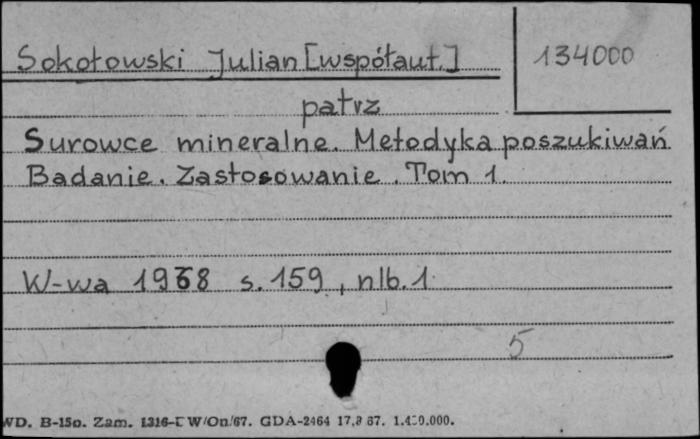 Sokołowski Julian [współaut.]
134000
patrz
Surowce mineralne. Metodyka poszukiwań
Badanie. Zastosowanie. Tom 1.
W-wa 1968 s. 159, nlb. 1
5
WD. B-15o. Zam. 1316-I W/On/67. GDA-2464 17.8 67.